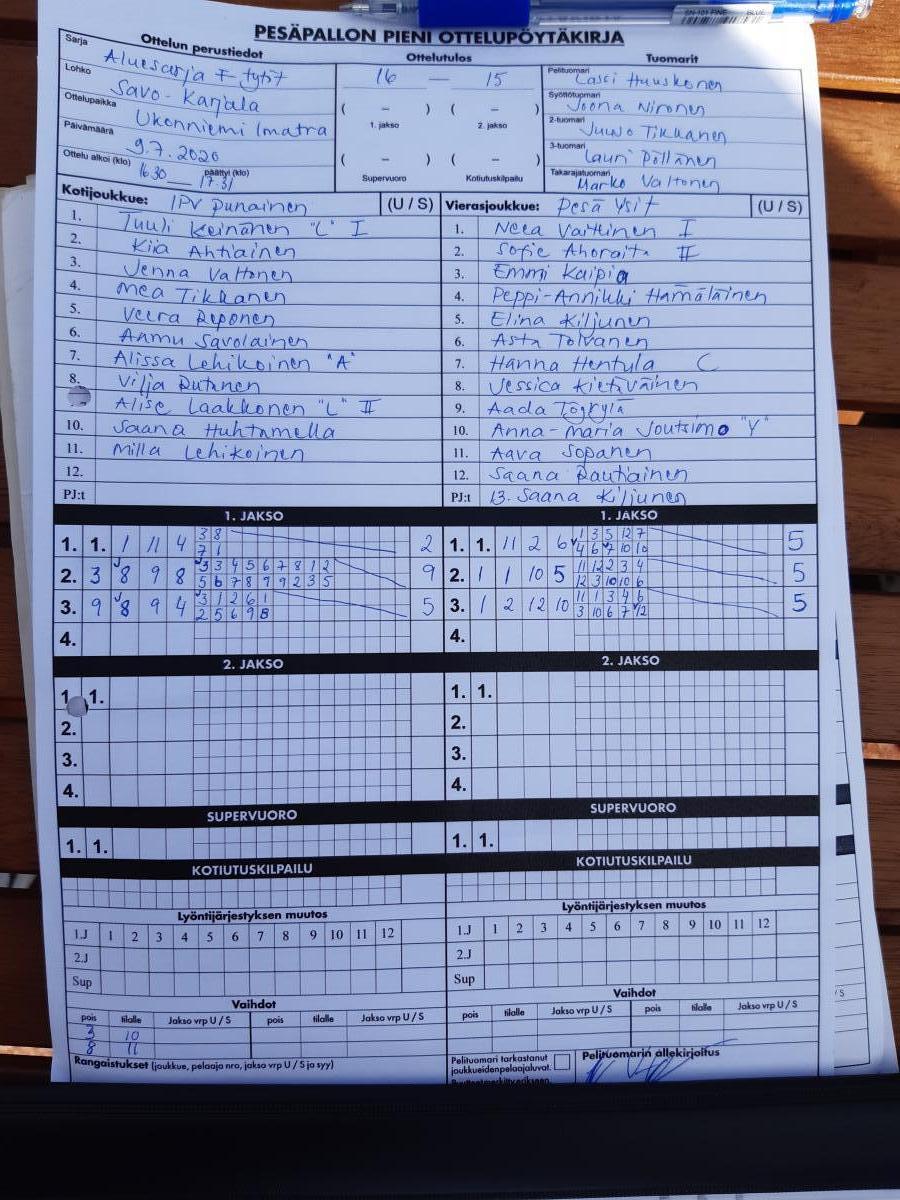 SN-101 FINE BLUE
PESÄPALLON PIENI OTTELUPÖYTÄKIRJA
Ottelun perustiedot
Sarja
Aluesarja F-tytöt
Lohko
Savo-Karjala
Ottelupaikka
Ukonniemi Imatra
Päivämäärä
9.7.2020
Ottelu alkoi (klo) 1630 päättyi (klo) 17.31
Ottelutulos
16 — 15
( – ) ( – )
1. jakso 2. jakso
( – ) ( – )
Supervuoro Kotiutuskilpailu
Tuomarit
Pelituomari
Lassi Huuskonen
Syöttötuomari
Joona Nironen
2-tuomari
Juuso Tikkanen
3-tuomari
Lauri Pöllänen
Takarajatuomari
Marko Valtonen
Kotijoukkue: IPV Punainen (U / S)
1. Tuuli Keinänen "L" I
2. Kiia Ahtiainen
3. Jenna Valtonen
4. Mea Tikkanen
5. Veera Reponen
6. Anmu Savolainen
7. Alissa Lehikoinen "A"
8. Vilja Rutanen
Alise Laakkonen "L" II
10. Saana Huhtamella
11. Milla Lehikoinen
12.
PJ:t
Vierasjoukkue: Pesä Ysit (U / S)
1. Neea Vaittinen I
2. Sofie II
3. Emmi Kaipia
4. Peppi-Annikki Hämäläinen
5. Elina Kiljunen
6. Asta Tolvanen
7. Hanna Hentula C
8. Jessica Kietäväinen
9. Aada
10. Anna-Maria Joutsimo "V"
11. Aava Sopanen
12. Saana Rautiainen
PJ:t 13. Saana Kiljunen
1. JAKSO
1. 1. 1 11 4 3 8 2
7 1
2. 3 8 9 8 3 3 4 5 6 7 8 1 2 9
5 6 7 8 9 9 2 3 5
3. 9 8 9 4 3 1 2 6 1 5
2 5 6 9 8
4.
1. JAKSO
1. 1. 11 2 6 1 3 5 12 7 5
4 6 7 10 10
2. 1 1 10 5 11 12 2 3 4 5
12 3 10 10 6
3. 1 2 12 10 11 1 3 4 6 5
3 10 6 7 12
4.
2. JAKSO
1. 1.
2.
3.
4.
2. JAKSO
1. 1.
2.
3.
4.
SUPERVUORO
1. 1.
SUPERVUORO
1. 1.
KOTIUTUSKILPAILU
KOTIUTUSKILPAILU
Lyöntijärjestyksen muutos
1.J 1 2 3 4 5 6 7 8 9 10 11 12
2.J
Sup
Lyöntijärjestyksen muutos
1.J 1 2 3 4 5 6 7 8 9 10 11 12
2.J
Sup
Vaihdot
pois tilalle Jakso vrp U / S pois tilalle Jakso vrp U / S
3 10
8 11
Vaihdot
pois tilalle Jakso vrp U / S pois tilalle Jakso vrp U / S
Rangaistukset (joukkue, pelaaja nro, jakso vrp U / S ja syy)
Pelituomari tarkastanut
joukkueidenpelaajaluvat.
Pelituomarin allekirjoitus
/ S